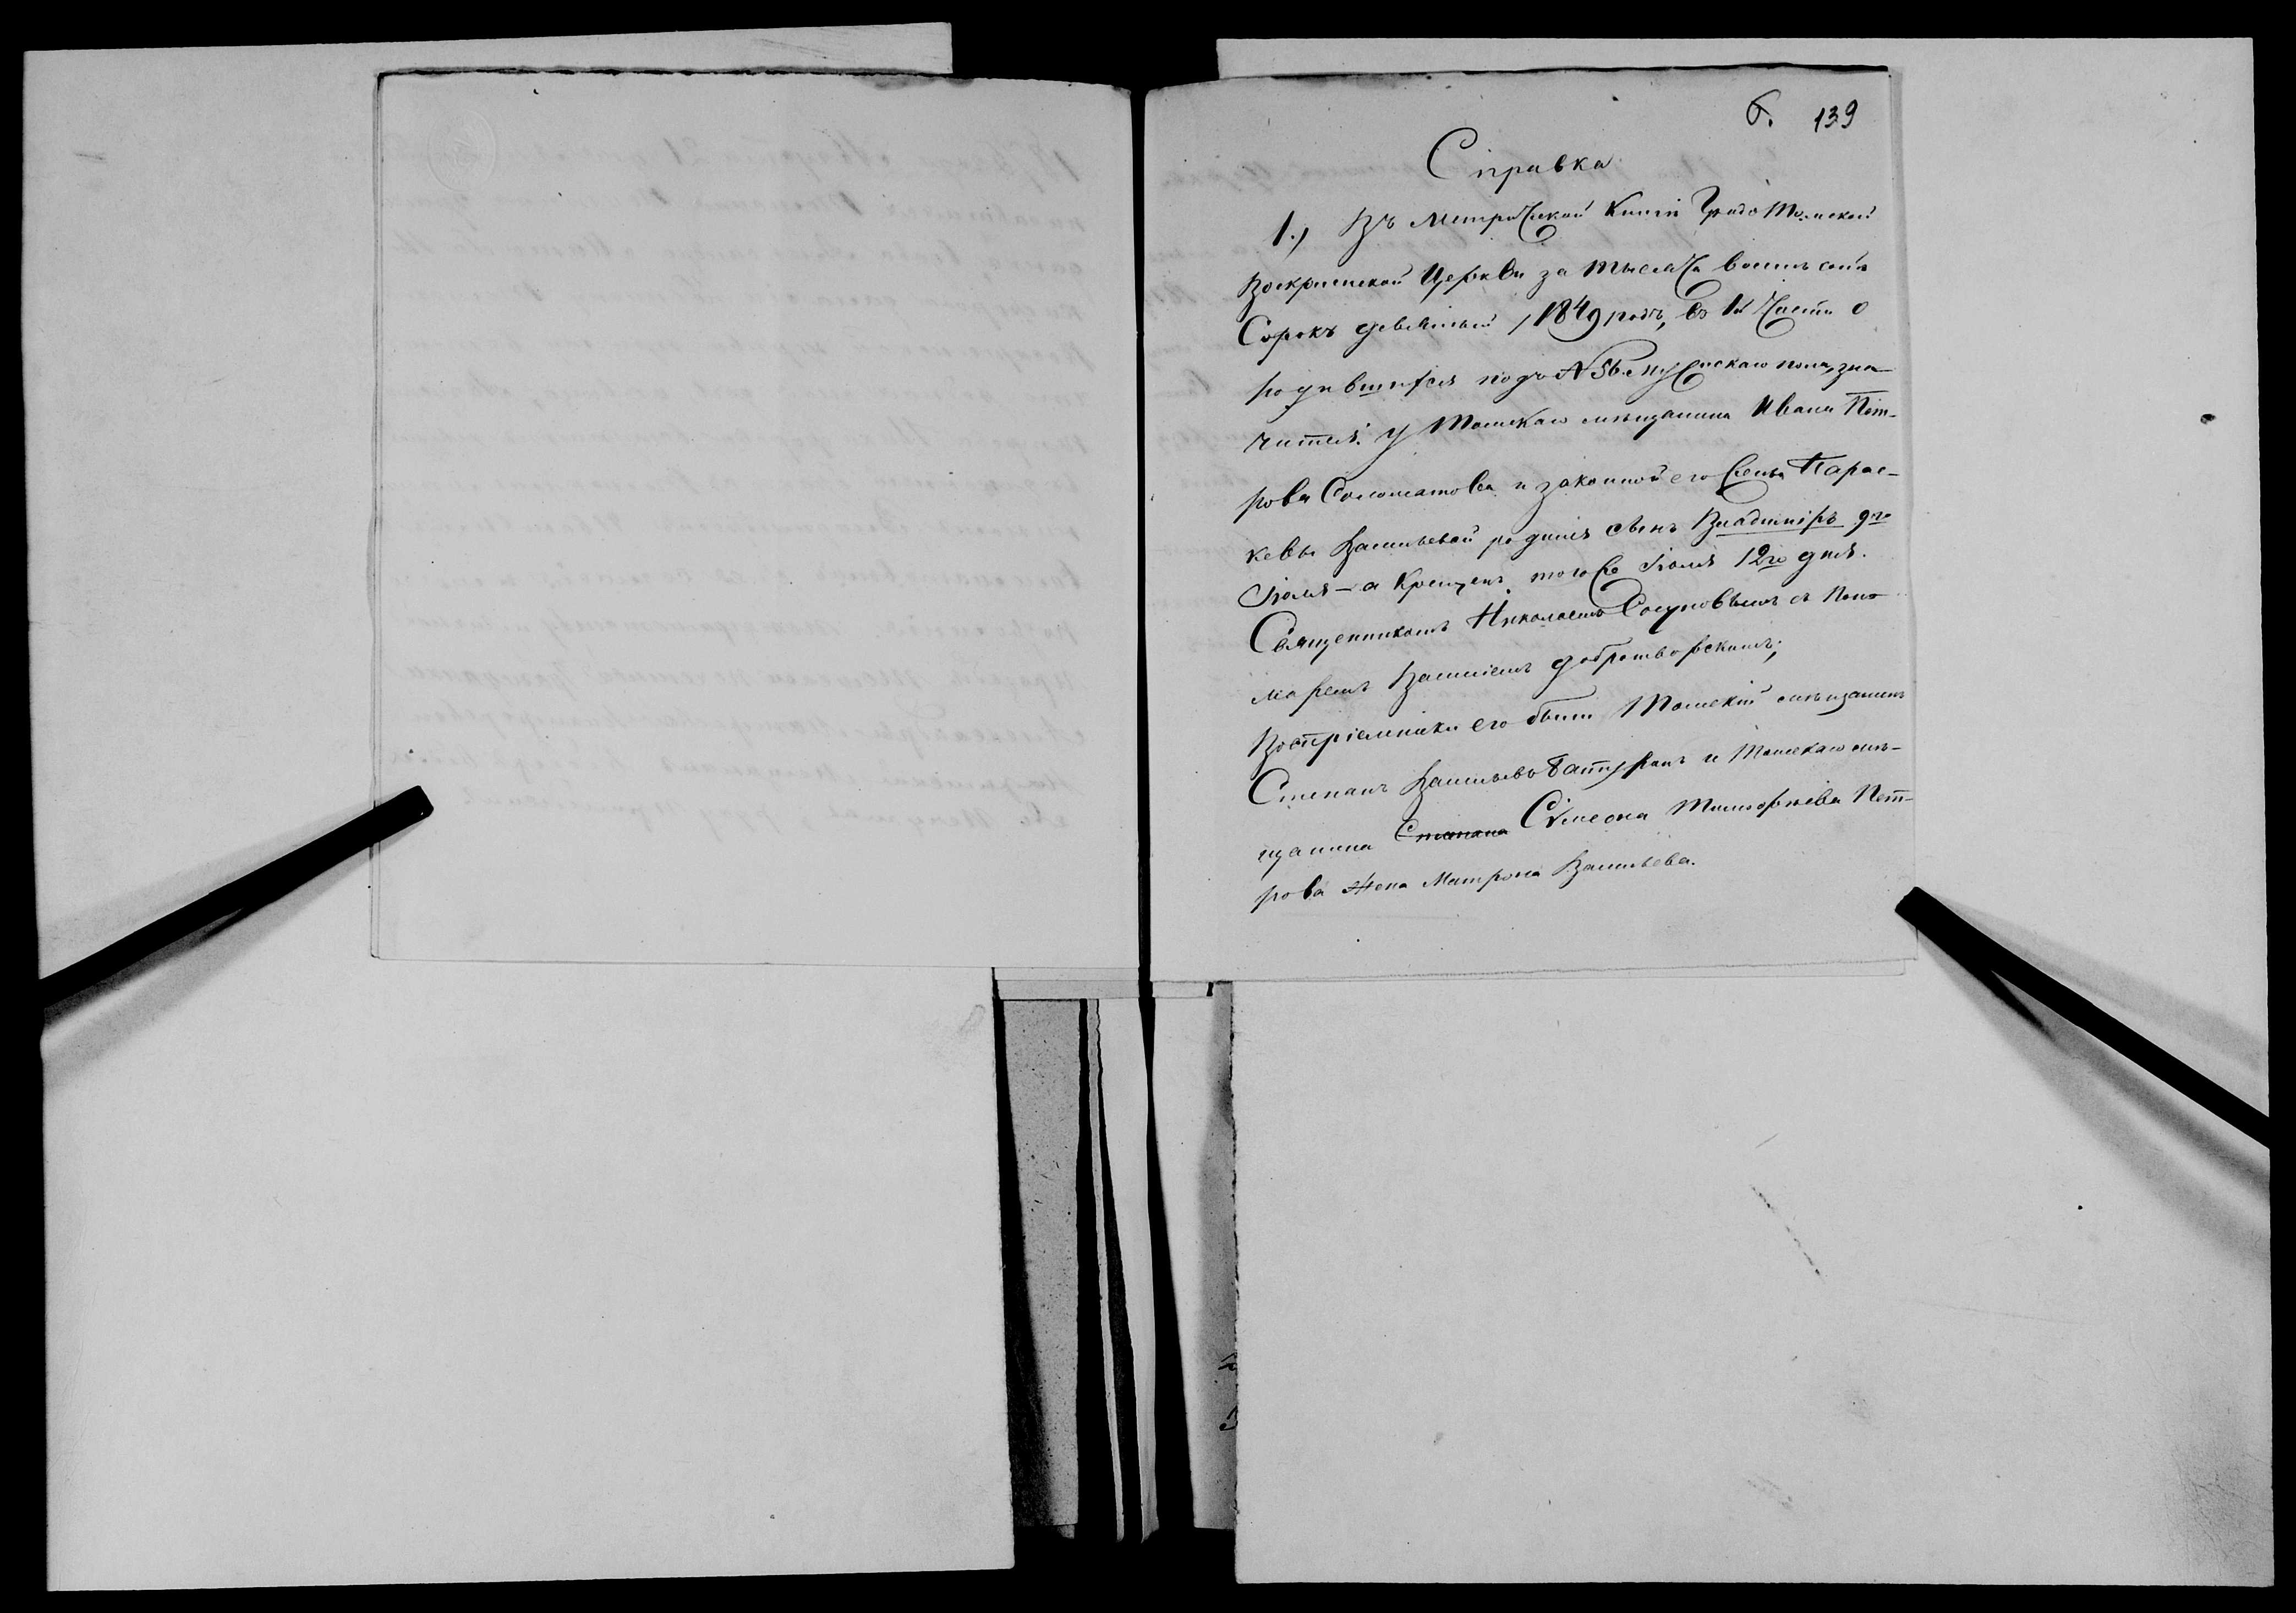 6. 139
Справка
1.) Въ метрической книгѣ Градо Томской
Воскресенской Церкви за тысяча восемь сотъ
Сорокъ девятый /1849 годъ, въ 1й Части о
родившихся подъ № 56. мужескаго пола, зна-
чится: У Томскаго мѣщанина Ивана Пет-
рова Соломатова и законной его жены Парас-
кевы Васильевой родился сынъ Владиміръ 9го
Іюля – а Крещенъ того же Іюля 12го дня.
Священникомъ Николаемъ Сосуновымъ съ Поно-
маремъ Василіемъ Добротворскимъ;
Воспріемники его были Томскій мѣщанинъ
Степанъ Васильевъ и Томскаго мѣ-
щанина Степана Сѵмеона Тимофѣева Пет-
рова жена Матрона Васильева.